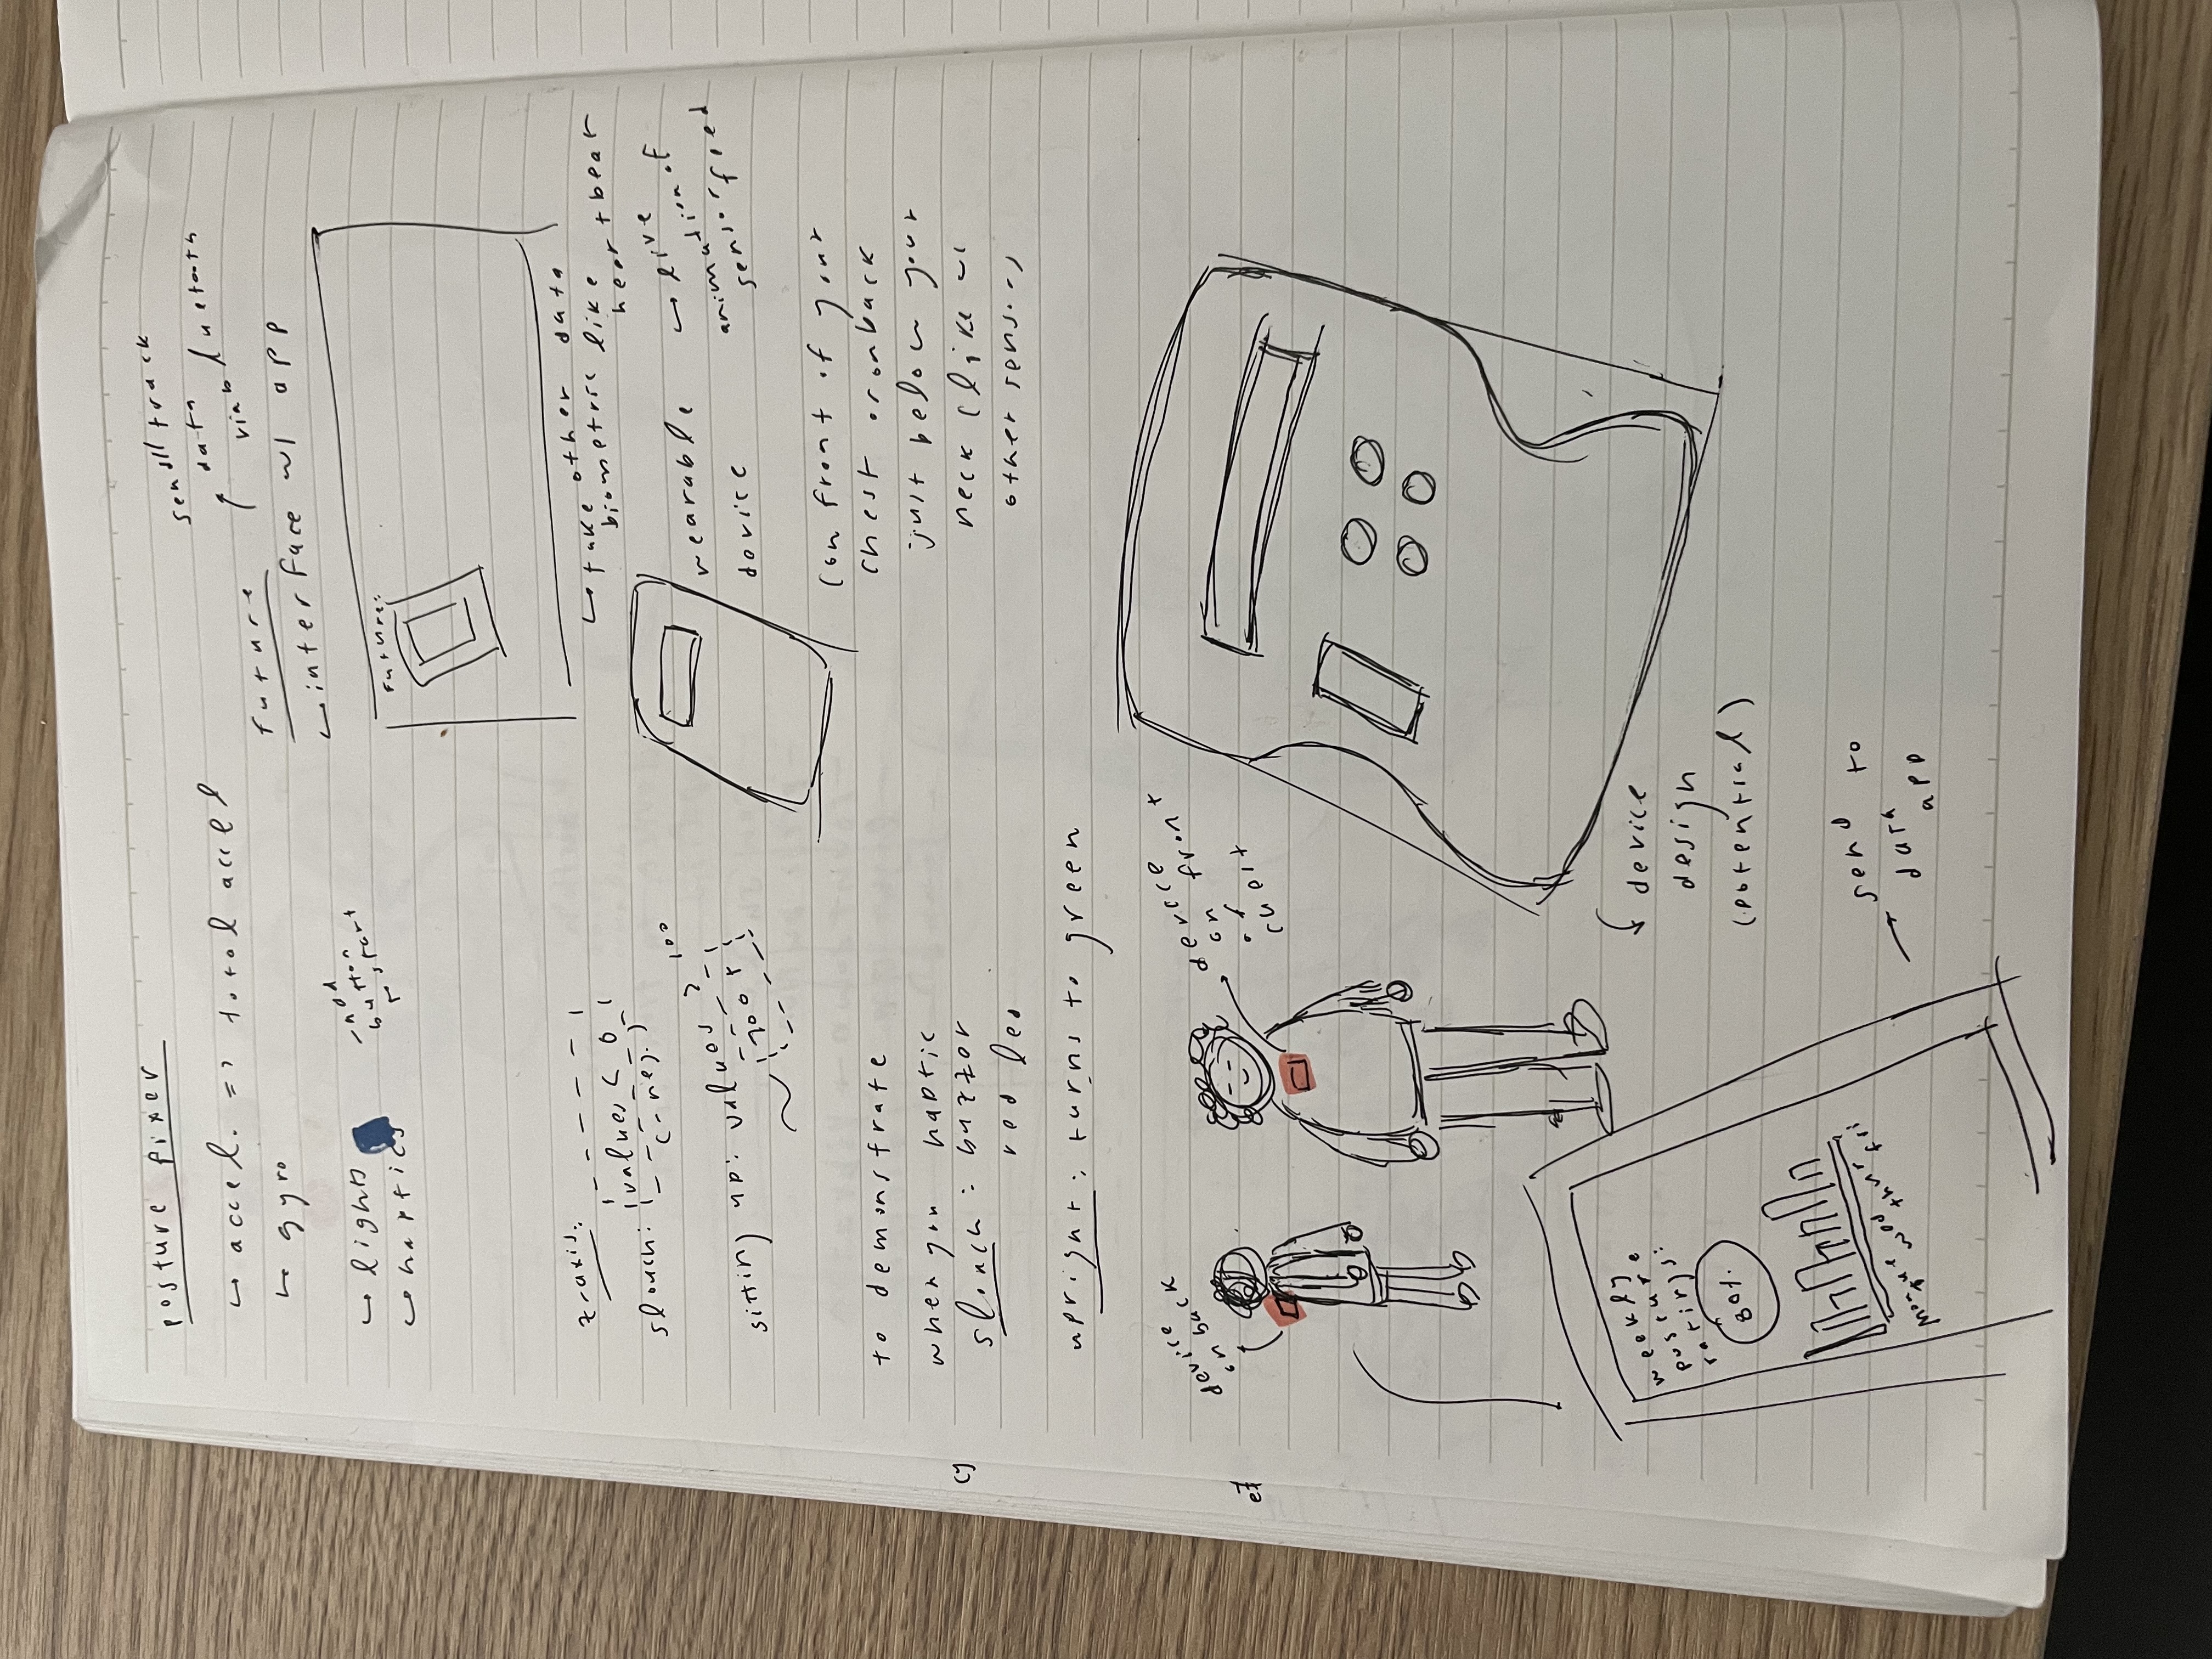 posture fixer
↳ accel. => total accel
↳ gyro
↳ lights
↳ haptics
→ add
button
restart
future
↳ interface w/ app
send/track
data
via bluetooth
future:
↳ take other data
biometric like
heartbeat
z-axis:
slouch: values < 0
(-ve)
sitting up: values >
100
wearable
device
↳ live
animation of
sensor feed
(on front of your
chest or on back
just below your
neck (like a
other sens..)
to demonstrate
when you haptic
slouch: buzzer
red led
upright: turns to green
device
on back
device
on front
of
chest
↳ device
design
(potential)
weekly
posture
rating:
80%
mon tue wed thur fri
→ send to
data
app